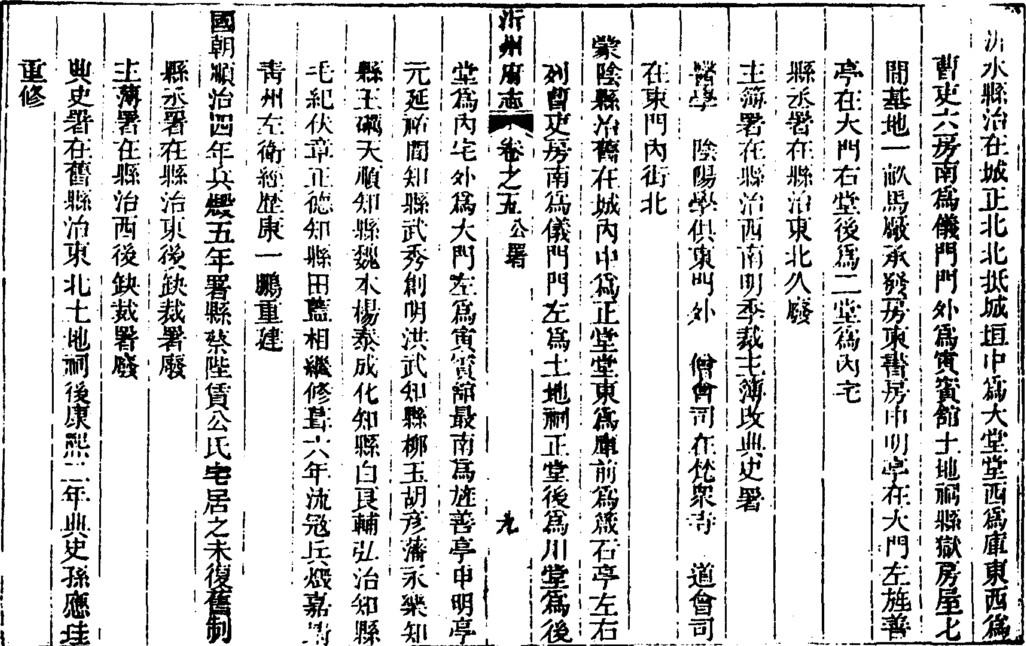 沂水縣治在城正北北抵城垣中爲大堂堂西爲庫東西爲
曹吏六房南爲儀門門外爲寅賓館土地祠縣獄房屋七
間基地一畝馬廠承發房東書房申明亭在大門左旌善
亭在大門右堂後爲二堂爲內宅
縣丞署在縣治東北久廢
主簿署在縣治西南明季裁主簿改典史署
醫學 陰陽學俱東門外 僧會司在梵衆寺 道會司
在東門內街北
蒙陰縣治舊在城內中爲正堂堂東爲庫前爲箴石亭左右
列曹吏房南爲儀門門左爲土地祠正堂後爲川堂爲後
沂州府志 卷之五 公署 九
堂爲內宅外爲大門左爲寅賓館最南爲旌善亭申明亭
元延祐間知縣武秀創明洪武知縣柳玉胡彥藩永樂知
縣王礪天順知縣魏本楊泰成化知縣白良輔弘治知縣
毛紀伏章正德知縣田藍相繼修葺六年流寇兵燬嘉靖
青州左衛經歷康一鵬重建
國朝順治四年兵燬五年署縣蔡陞賃公氏宅居之未復舊制
縣丞署在縣治東後缺裁署廢
主薄署在縣治西後缺裁署廢
典史署在舊縣治東北土地祠後康熙二年典史孫應珪
重修